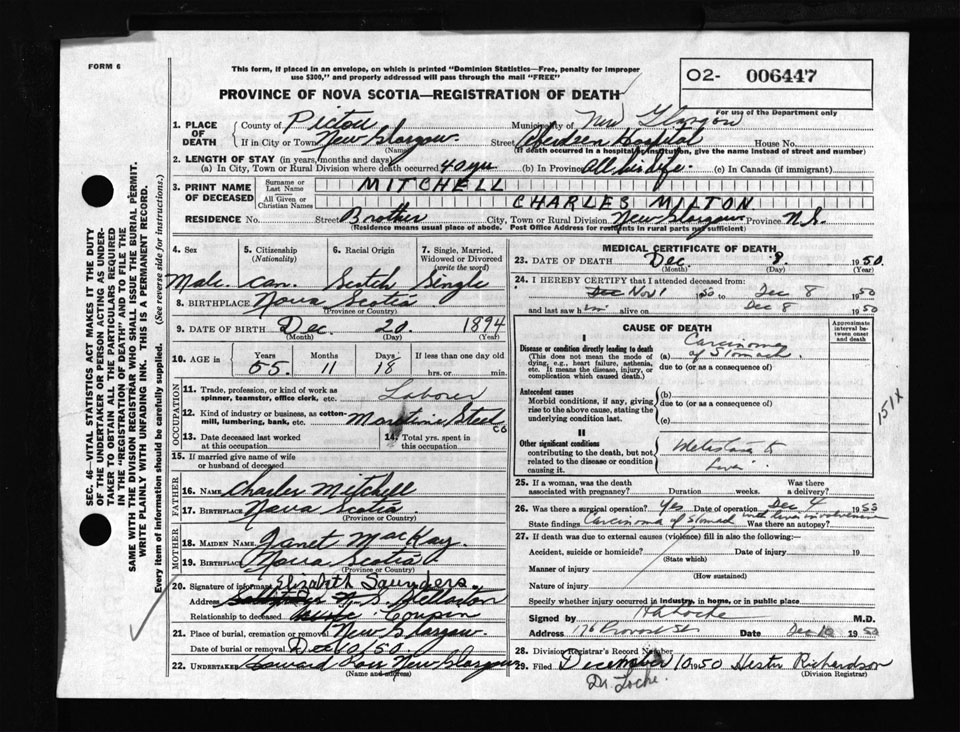 FORM 6
This form, if placed in an envelope, on which is printed "Dominion Statistics—Free, penalty for improper
use $300," and properly addressed will pass through the mail "FREE"
O2- 006447
PROVINCE OF NOVA SCOTIA—REGISTRATION OF DEATH
For use of the Department only
1. PLACE OF DEATH County of Pictou Municipality of New Glasgow
If in City or Town New Glasgow. Street Aberdeen Hospital House No.
(Name) (If death occurred in a hospital or institution, give the name instead of street and number)
2. LENGTH OF STAY (in years, months and days)
(a) In City, Town or Rural Division where death occurred 40 yrs (b) In Province All his life. (c) In Canada (if immigrant)
3. PRINT NAME OF DECEASED Surname or Last Name MITCHELL
All Given or Christian Names CHARLES MILTON
RESIDENCE No. Street Brother City, Town or Rural Division New Glasgow Province N.S.
(Residence means usual place of abode. Post Office Address for residents in rural parts not sufficient)
4. Sex 5. Citizenship (Nationality) 6. Racial Origin 7. Single, Married, Widowed or Divorced (write the word)
Male. Can. Scotch Single
8. BIRTHPLACE Nova Scotia
(Province or Country)
9. DATE OF BIRTH Dec. 20. 1894
(Month) (Day) (Year)
10. AGE in Years Months Days If less than one day old
55. 11 18 hrs. or min.
OCCUPATION
11. Trade, profession, or kind of work as spinner, teamster, office clerk, etc. Laborer
12. Kind of industry or business, as cotton-mill, lumbering, bank, etc. Maritime Steel Co
13. Date deceased last worked at this occupation 14. Total yrs. spent in this occupation
15. If married give name of wife or husband of deceased
FATHER
16. NAME Charles Mitchell
17. BIRTHPLACE Nova Scotia
(Province or Country)
MOTHER
18. MAIDEN NAME Janet MacKay.
19. BIRTHPLACE Nova Scotia
(Province or Country)
20. Signature of informant Elizabeth Saunders
Address N.S. Stellarton
Relationship to deceased Cousin
21. Place of burial, cremation or removal New Glasgow.
Date of burial or removal Dec 10/50
22. UNDERTAKER New Glasgow
(Name and address)
MEDICAL CERTIFICATE OF DEATH
23. DATE OF DEATH Dec. 8. 1950.
(Month) (Day) (Year)
24. I HEREBY CERTIFY that I attended deceased from:
Dec Nov 1 1950 to Dec 8 1950
and last saw him alive on Dec 8 1950
CAUSE OF DEATH
Approximate interval between onset and death
I
Disease or condition directly leading to death (a) Carcinoma of Stomach
(This does not mean the mode of dying, e.g., heart failure, asthenia, etc. It means the disease, injury, or complication which caused death.)
due to (or as a consequence of)
Antecedent causes
Morbid conditions, if any, giving rise to the above cause, stating the underlying condition last.
(b)
due to (or as a consequence of)
(c)
151X
II
Other significant conditions
contributing to the death, but not related to the disease or condition causing it.
Metastasis to Liver
25. If a woman, was the death associated with pregnancy? Duration weeks. Was there a delivery?
26. Was there a surgical operation? Yes Date of operation Dec 4 1950
State findings Carcinoma of Stomach with liver involvement Was there an autopsy?
27. If death was due to external causes (violence) fill in also the following:—
Accident, suicide or homicide? Date of injury 19
(State which)
Manner of injury
(How sustained)
Nature of injury
Specify whether injury occurred in industry, in home, or in public place
Signed by H A Locke M.D.
Address 176 Provost St Date Dec 10 1950
28. Division Registrar's Record Number
29. Filed December 10, 1950 Hester Richardson
(Division Registrar)
Dr Locke.
SEC. 46—VITAL STATISTICS ACT MAKES IT THE DUTY
OF THE UNDERTAKER OR PERSON ACTING AS UNDER-
TAKER TO OBTAIN ALL THE PARTICULARS REQUIRED
IN THE "REGISTRATION OF DEATH" AND TO FILE THE
SAME WITH THE DIVISION REGISTRAR WHO SHALL ISSUE THE BURIAL PERMIT.
WRITE PLAINLY WITH UNFADING INK. THIS IS A PERMANENT RECORD.
Every item of information should be carefully supplied. (See reverse side for instructions.)